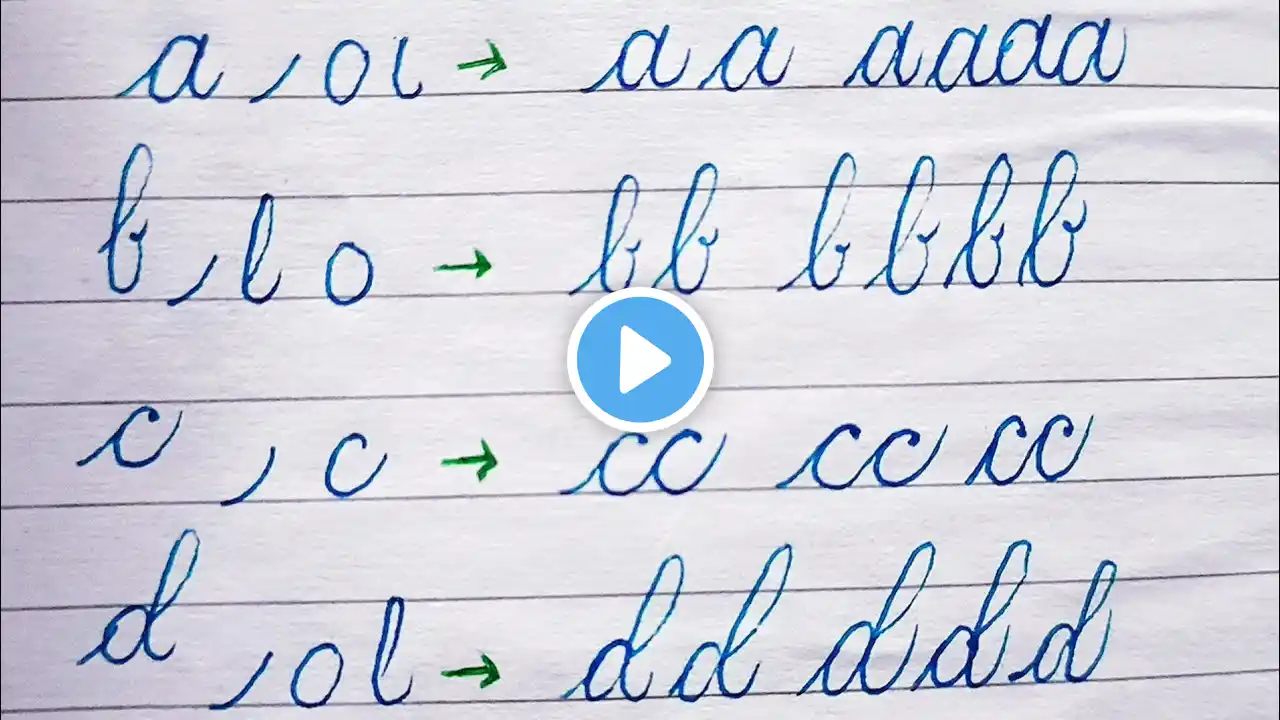 a , o ι → a a a a a a
b , l o → b b b b b b
c , c → cc cc cc
d , o l → d d d d d